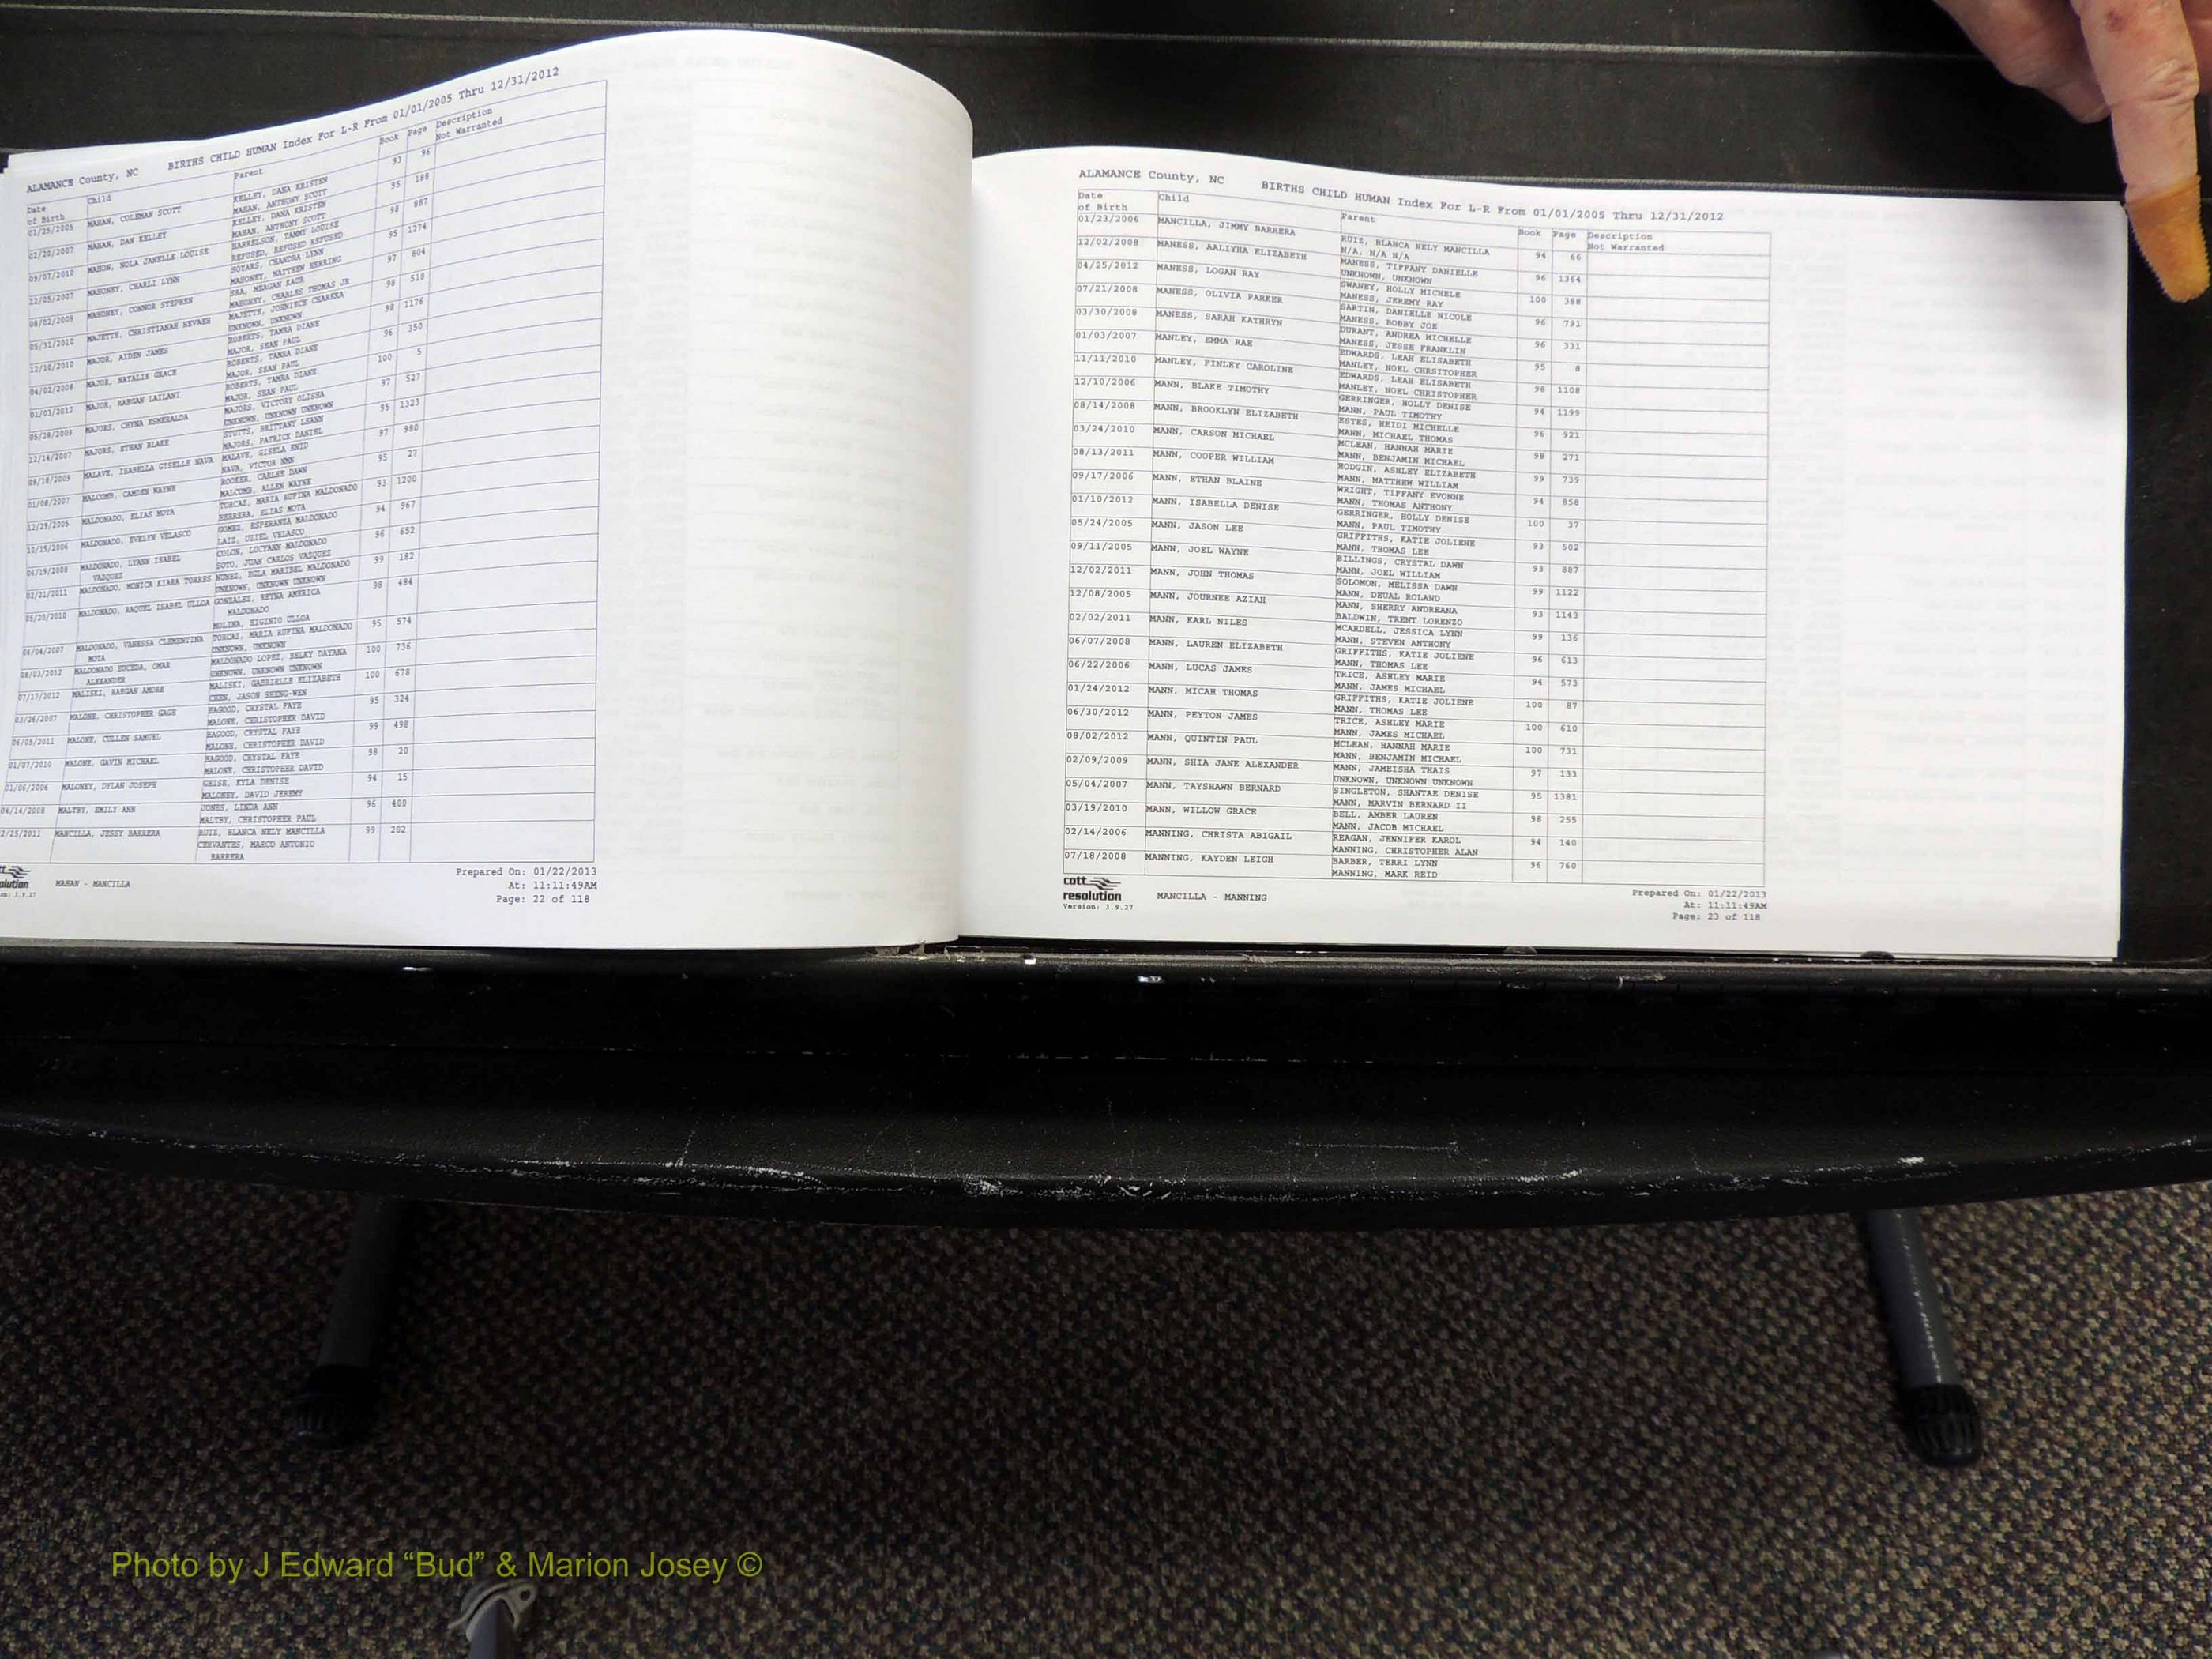 ALAMANCE County, NC BIRTHS CHILD HUMAN Index For L-R From 01/01/2005 Thru 12/31/2012
Date of Birth Child Parent Book Page Description Not Warranted
01/25/2005 MAHAN, COLEMAN SCOTT KELLEY, DANA KRISTEN 93 96
MAHAN, ANTHONY SCOTT
02/20/2007 MAHAN, DAN KELLEY KELLEY, DANA KRISTEN 95 188
MAHAN, ANTHONY SCOTT
09/07/2010 MAHON, NOLA JANELLE LOUISE HARRELSON, TAMMY LOUISE 98 887
REFUSED, REFUSED REFUSED
12/05/2007 MAHONEY, CHARLI LYNN SOYARS, CHANDRA LYNN 95 1274
MAHONEY, MATTHEW HERRING
08/02/2009 MAHONEY, CONNOR STEPHEN MEAGAN KAUR 97 804
MAHONEY, CHARLES THOMAS JR
05/31/2010 MAJETTE, CHRISTIANAH NEVAEH MAJETTE, JORNIECE CHAREKA 98 518
UNKNOWN, UNKNOWN
12/10/2010 MAJOR, AIDEN JAMES ROBERTS, TAMRA DIANE 98 1176
MAJOR, SEAN PAUL
04/02/2008 MAJOR, NATALIE GRACE ROBERTS, TAMRA DIANE 96 350
MAJOR, SEAN PAUL
01/03/2012 MAJOR, RAEGAN LAILANI ROBERTS, TAMRA DIANE 100 5
MAJOR, SEAN PAUL
05/28/2009 MAJORS, CHYNA ESMERALDA MAJORS, VICTORY OLISHA 97 527
UNKNOWN, UNKNOWN UNKNOWN
12/14/2007 MAJORS, ETHAN BLAKE STUTTS, BRITTANY LEANN 95 1323
MAJORS, PATRICK DANIEL
09/18/2009 MALAVE, ISABELLA GISELLE NAVA MALAVE, GISELA ENID 97 980
NAVA, VICTOR NMN
01/08/2007 MALCOMB, CAMDEN WAYNE BOOKER, CARLEE DAWN 95 27
MALCOMB, ALLEN WAYNE
12/29/2005 MALDONADO, ELIAS MOTA TORCAZ, MARIA RUFINA MALDONADO 93 1200
HERRERA, ELIAS MOTA
10/15/2006 MALDONADO, EVELYN VELASCO GOMEZ, ESPERANZA MALDONADO 94 967
LAIZ, UZIEL VELASCO
06/19/2008 MALDONADO, LYANN ISABEL VAZQUEZ COLON, LUCYANN MALDONADO 96 652
SOTO, JUAN CARLOS VAZQUEZ
02/21/2011 MALDONADO, MONICA KIARA TORRES NUNEZ, EGLA MARIBEL MALDONADO 99 182
UNKNOWN, UNKNOWN UNKNOWN
05/20/2010 MALDONADO, RAQUEL ISABEL ULLOA GONZALEZ, REYNA AMERICA MALDONADO 98 484
MOLINA, HIGINIO ULLOA
08/04/2007 MALDONADO, VANESSA CLEMENTINA MOTA TORCAZ, MARIA RUFINA MALDONADO 95 574
UNKNOWN, UNKNOWN
08/03/2012 MALDONADO EUCEDA, OMAR ALEXANDER MALDONADO LOPEZ, BELKY DAYANA 100 736
UNKNOWN, UNKNOWN UNKNOWN
07/17/2012 MALISKI, RAEGAN AMORE MALISKI, GABRIELLE ELIZABETH 100 678
CHEN, JASON SHENG-WEN
03/26/2007 MALONE, CHRISTOPHER GAGE HAGOOD, CRYSTAL FAYE 95 324
MALONE, CHRISTOPHER DAVID
06/05/2011 MALONE, CULLEN SAMUEL HAGOOD, CRYSTAL FAYE 99 498
MALONE, CHRISTOPHER DAVID
01/07/2010 MALONE, GAVIN MICHAEL HAGOOD, CRYSTAL FAYE 98 20
MALONE, CHRISTOPHER DAVID
01/06/2006 MALONEY, DYLAN JOSEPH GEISE, KYLA DENISE 94 15
MALONEY, DAVID JEREMY
04/14/2008 MALTBY, EMILY ANN JONES, LINDA ANN 96 400
MALTBY, CHRISTOPHER PAUL
2/25/2011 MANCILLA, JESSY BARRERA RUIZ, BLANCA NELY MANCILLA 99 202
CERVANTES, MARCO ANTONIO BARRERA
MAHAN - MANCILLA
Prepared On: 01/22/2013
At: 11:11:49AM
Page: 22 of 118
ALAMANCE County, NC BIRTHS CHILD HUMAN Index For L-R From 01/01/2005 Thru 12/31/2012
Date of Birth Child Parent Book Page Description Not Warranted
01/23/2006 MANCILLA, JIMMY BARRERA RUIZ, BLANCA NELY MANCILLA 94 66
N/A, N/A N/A
12/02/2008 MANESS, AALIYHA ELIZABETH MANESS, TIFFANY DANIELLE 96 1364
UNKNOWN, UNKNOWN
04/25/2012 MANESS, LOGAN RAY SWANEY, HOLLY MICHELE 100 388
MANESS, JEREMY RAY
07/21/2008 MANESS, OLIVIA PARKER SARTIN, DANIELLE NICOLE 96 791
MANESS, BOBBY JOE
03/30/2008 MANESS, SARAH KATHRYN DURANT, ANDREA MICHELLE 96 331
MANESS, JESSE FRANKLIN
01/03/2007 MANLEY, EMMA RAE EDWARDS, LEAH ELISABETH 95 8
MANLEY, NOEL CHRSITOPHER
11/11/2010 MANLEY, FINLEY CAROLINE EDWARDS, LEAH ELISABETH 98 1108
MANLEY, NOEL CHRISTOPHER
12/10/2006 MANN, BLAKE TIMOTHY GERRINGER, HOLLY DENISE 94 1199
MANN, PAUL TIMOTHY
08/14/2008 MANN, BROOKLYN ELIZABETH ESTES, HEIDI MICHELLE 96 921
MANN, MICHAEL THOMAS
03/24/2010 MANN, CARSON MICHAEL MCLEAN, HANNAH MARIE 98 271
MANN, BENJAMIN MICHAEL
08/13/2011 MANN, COOPER WILLIAM HODGIN, ASHLEY ELIZABETH 99 739
MANN, MATTHEW WILLIAM
09/17/2006 MANN, ETHAN BLAINE WRIGHT, TIFFANY EVONNE 94 858
MANN, THOMAS ANTHONY
01/10/2012 MANN, ISABELLA DENISE GERRINGER, HOLLY DENISE 100 37
MANN, PAUL TIMOTHY
05/24/2005 MANN, JASON LEE GRIFFITHS, KATIE JOLIENE 93 502
MANN, THOMAS LEE
09/11/2005 MANN, JOEL WAYNE BILLINGS, CRYSTAL DAWN 93 887
MANN, JOEL WILLIAM
12/02/2011 MANN, JOHN THOMAS SOLOMON, MELISSA DAWN 99 1122
MANN, DEUAL ROLAND
12/08/2005 MANN, JOURNEE AZIAH MANN, SHERRY ANDREANA 93 1143
BALDWIN, TRENT LORENZO
02/02/2011 MANN, KARL NILES MCARDELL, JESSICA LYNN 99 136
MANN, STEVEN ANTHONY
06/07/2008 MANN, LAUREN ELIZABETH GRIFFITHS, KATIE JOLIENE 96 613
MANN, THOMAS LEE
06/22/2006 MANN, LUCAS JAMES TRICE, ASHLEY MARIE 94 573
MANN, JAMES MICHAEL
01/24/2012 MANN, MICAH THOMAS GRIFFITHS, KATIE JOLIENE 100 87
MANN, THOMAS LEE
06/30/2012 MANN, PEYTON JAMES TRICE, ASHLEY MARIE 100 610
MANN, JAMES MICHAEL
08/02/2012 MANN, QUINTIN PAUL MCLEAN, HANNAH MARIE 100 731
MANN, BENJAMIN MICHAEL
02/09/2009 MANN, SHIA JANE ALEXANDER MANN, JAMEISHA THAIS 97 133
UNKNOWN, UNKNOWN UNKNOWN
05/04/2007 MANN, TAYSHAWN BERNARD SINGLETON, SHANTAE DENISE 95 1381
MANN, MARVIN BERNARD II
03/19/2010 MANN, WILLOW GRACE BELL, AMBER LAUREN 98 255
MANN, JACOB MICHAEL
02/14/2006 MANNING, CHRISTA ABIGAIL REAGAN, JENNIFER KAROL 94 140
MANNING, CHRISTOPHER ALAN
07/18/2008 MANNING, KAYDEN LEIGH BARBER, TERRI LYNN 96 760
MANNING, MARK REID
cott
resolution
Version: 3.9.27
MANCILLA - MANNING
Prepared On: 01/22/2013
At: 11:11:49AM
Page: 23 of 118
Photo by J Edward “Bud” & Marion Josey ©